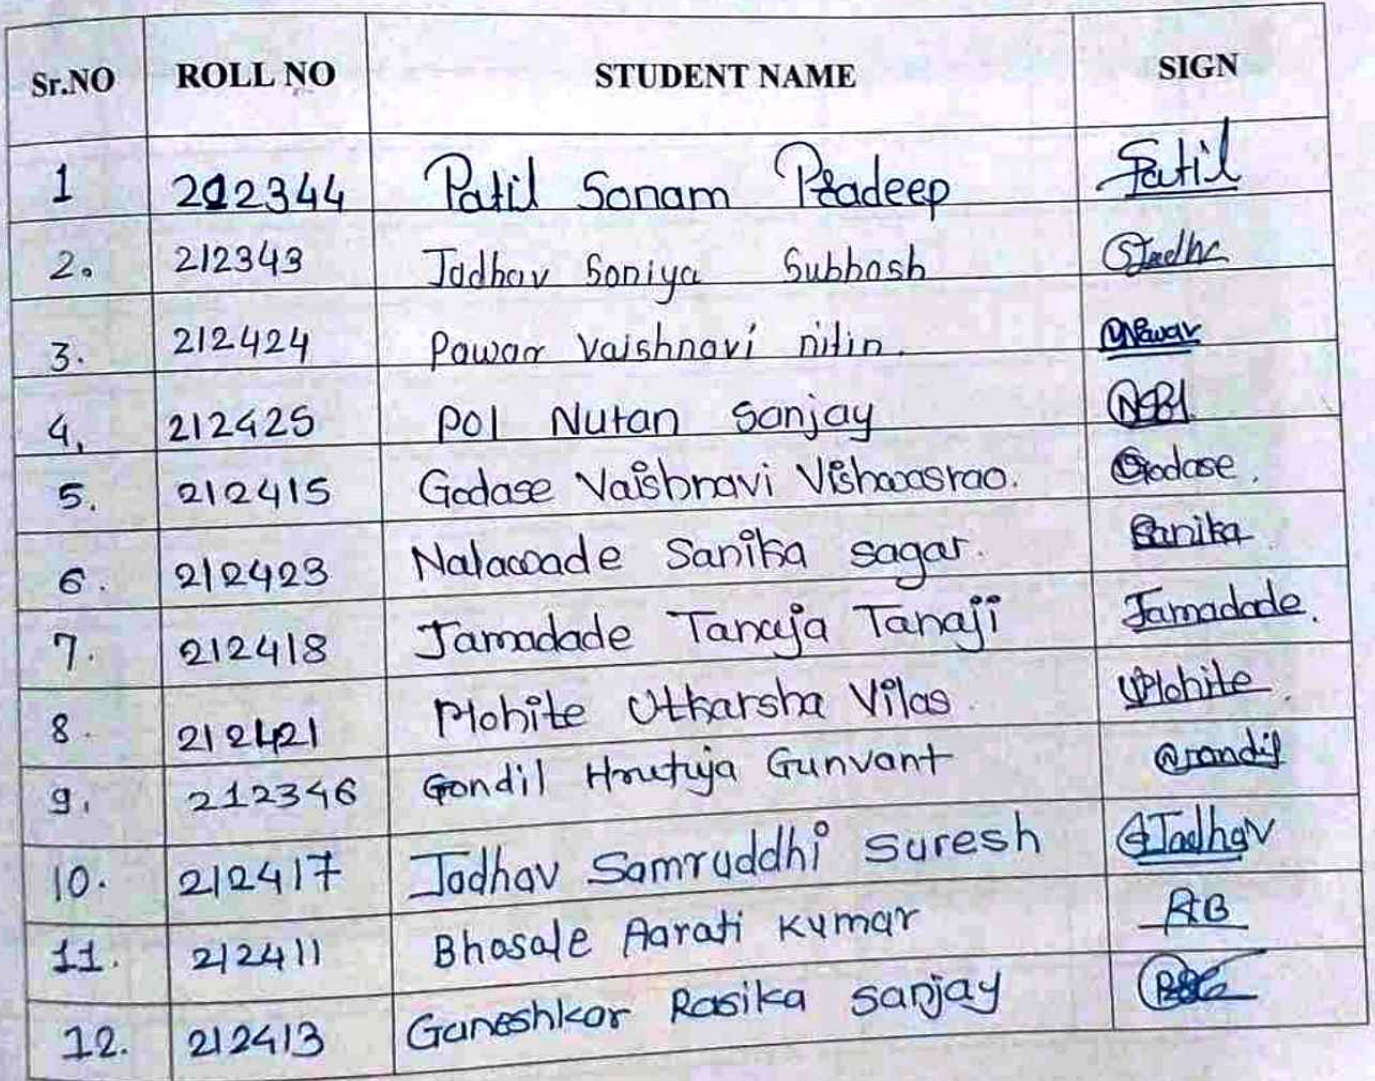 Sr.NO ROLL NO STUDENT NAME SIGN
1 212344 Patil Sonam Pradeep Patil
2. 212343 Jadhav Soniya Subhash SJadha
3. 212424 Pawar Vaishnavi nitin. VNPawar
4. 212425 Pol Nutan Sanjay
5. 212415 Godase Vaishnavi Vishwasrao. Godase.
6. 212423 Nalawade Sanika sagar. Sanika
7. 212418 Jamadade Tanuja Tanaji Jamadade.
8. 212421 Mohite Utkarsha Vilas. UMohite.
9. 212346 Gondil Hrutuja Gunvant
10. 212417 Jadhav Samruddhi Suresh SJadhav
11. 212411 Bhosale Aarati Kumar AB
12. 212413 Ganeshkar Rasika Sanjay